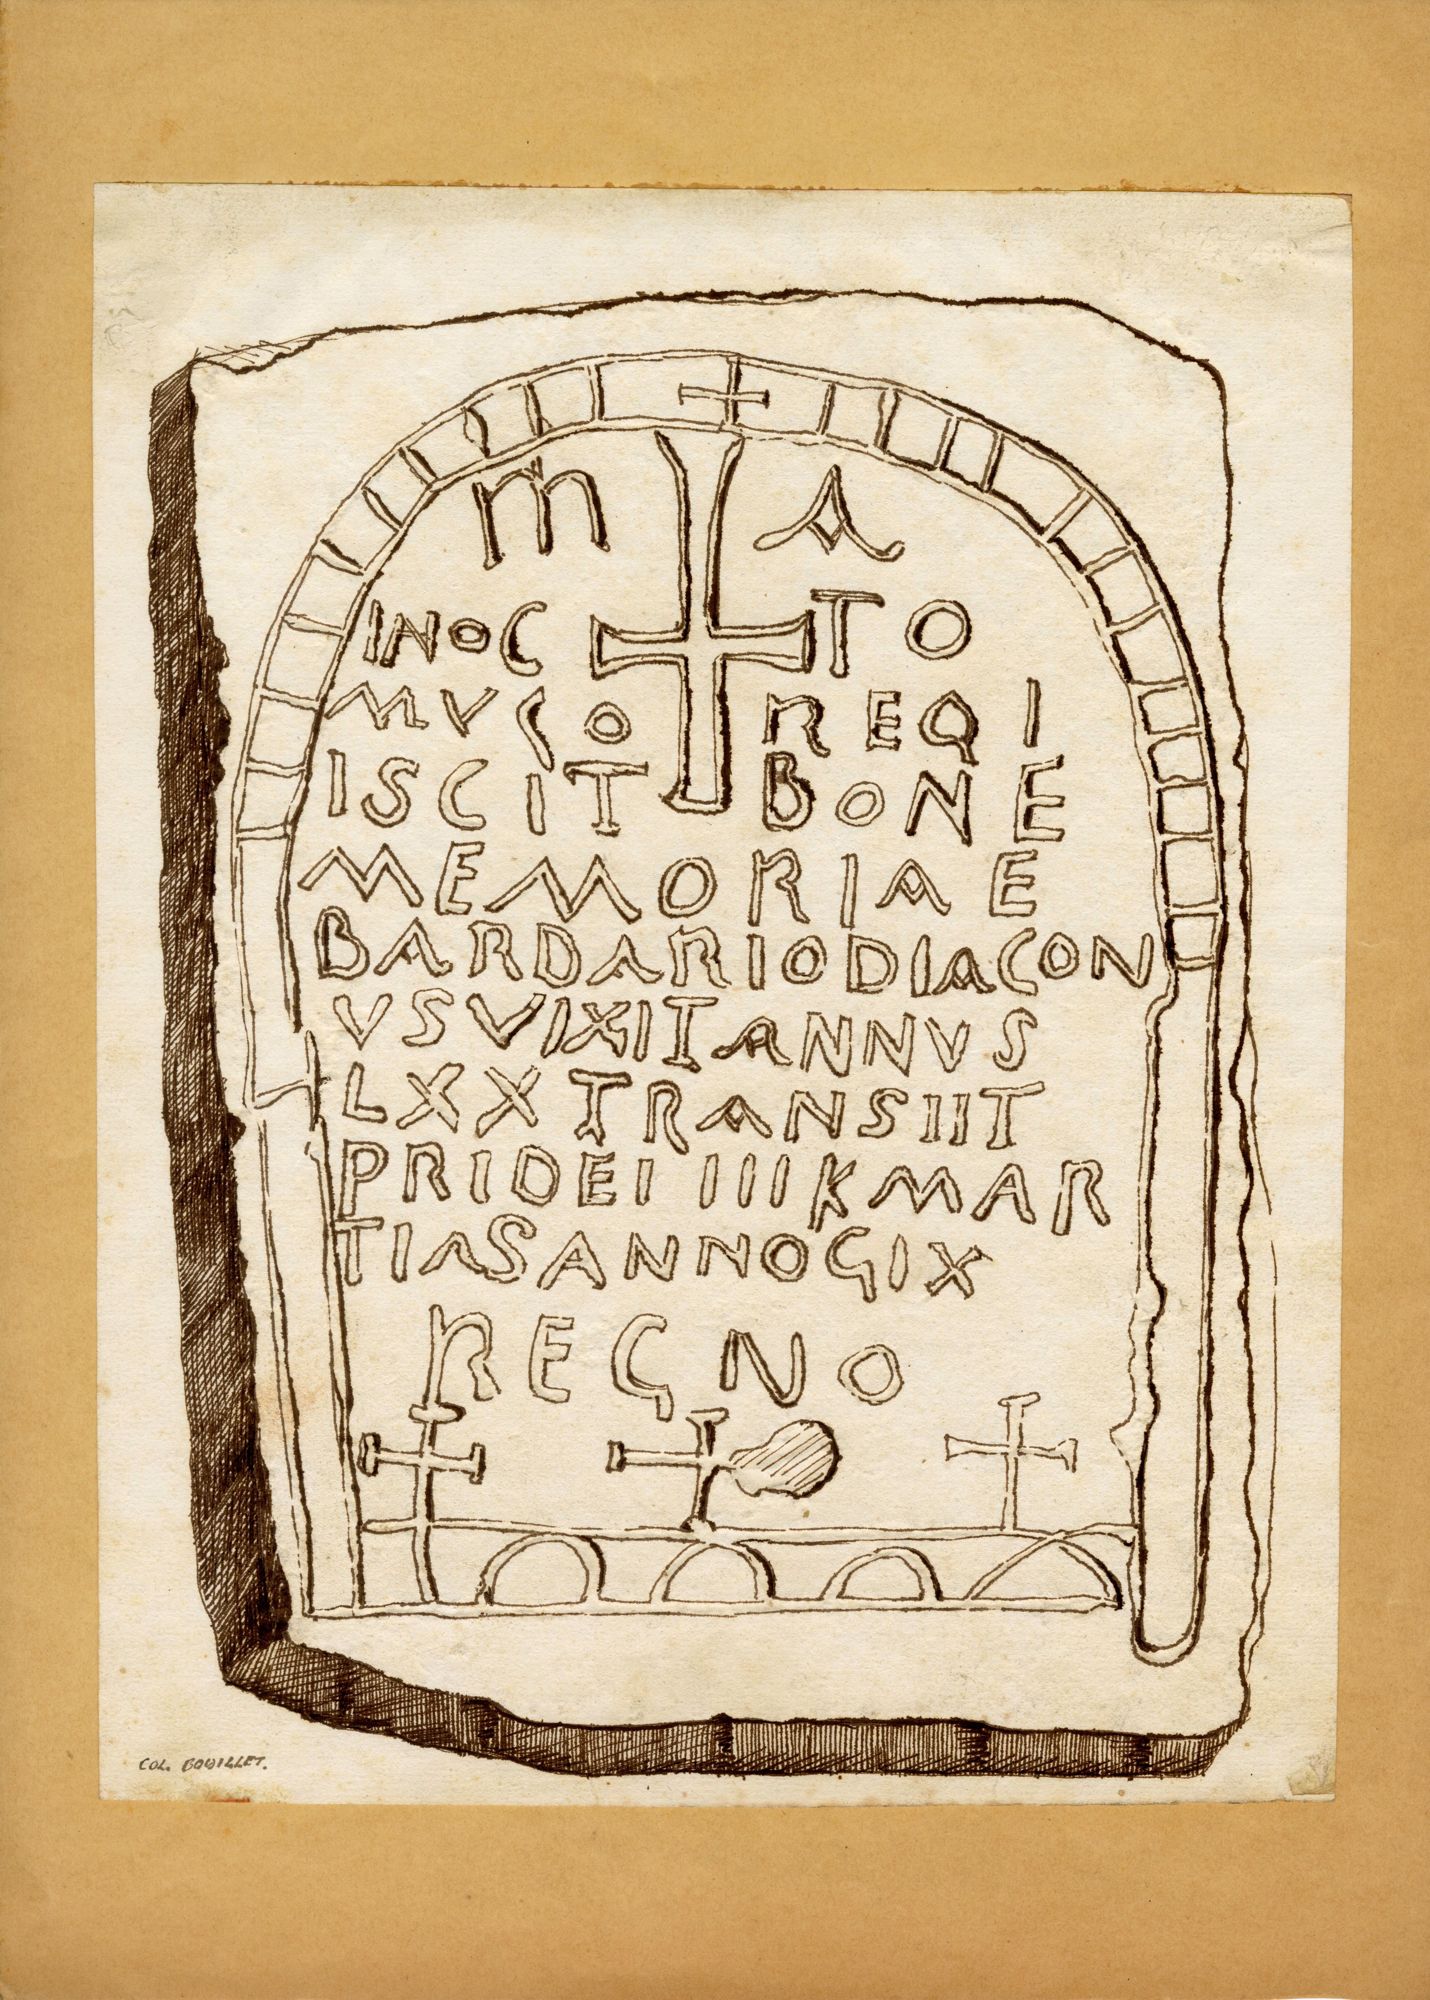 ω A
INOC TO
MVLO REQI
ISCIT BONE
MEMORIAE
BARDARIODIACON
VSVIXITANNVS
LXXTRANSIIT
PRIDEIIIIKMAR
TIASANNOGIX
REGNO
COL. BOUILLET.